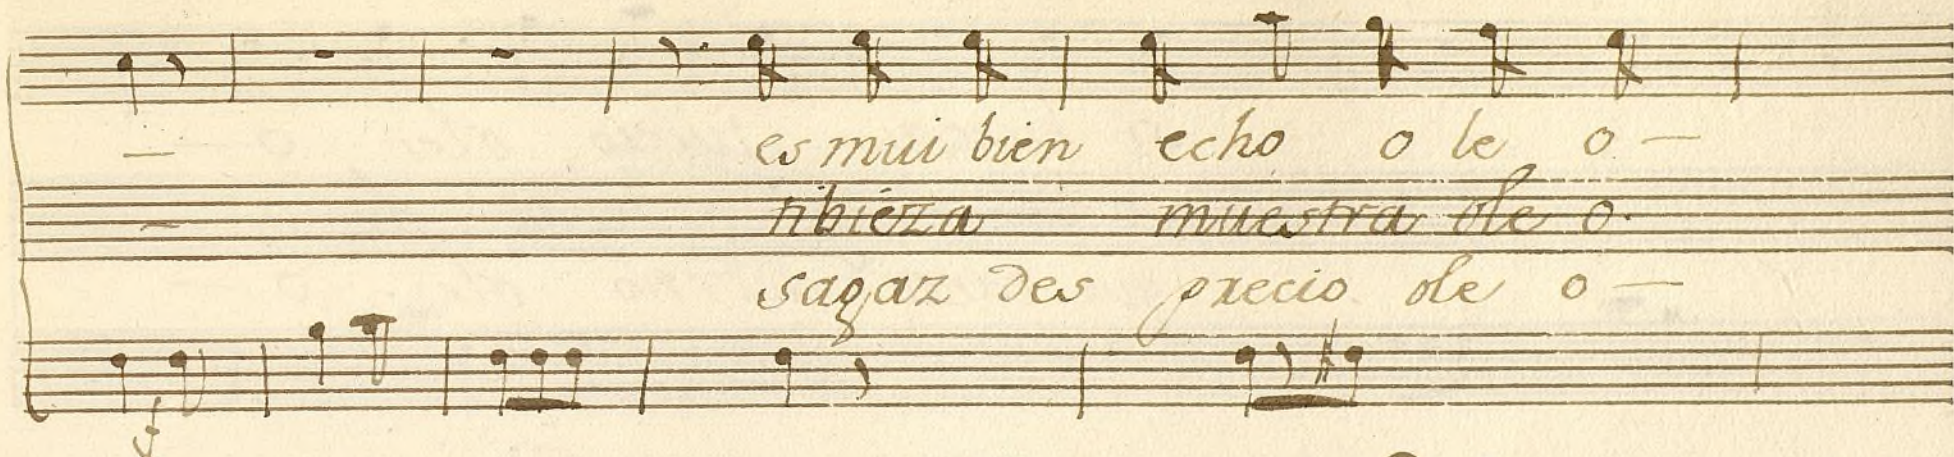 — es mui bien echo o le o —
— tibieza muestra ole o.
sagaz des precio ole o —
f